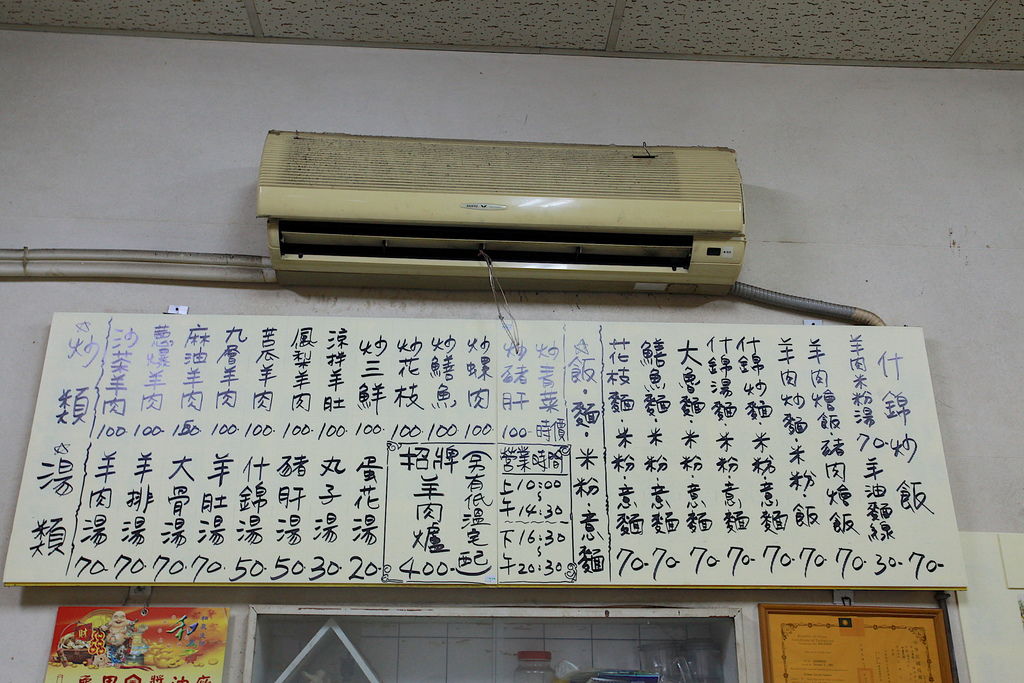 ☆炒類
沙茶羊肉 100.
蔥爆羊肉 100.
麻油羊肉 150
九層羊肉 100.
苦瓜羊肉 100.
鳳梨羊肉 100.
涼拌羊肚 100.
炒三鮮 100.
炒花枝 100.
炒鱔魚 100.
炒螺肉 100.
炒豬肝 100.
炒青菜 時價
☆湯類
羊肉湯 70.
羊排湯 70.
大骨湯 70.
羊肚湯 70.
什錦湯 50.
豬肝湯 50.
丸子湯 30.
蛋花湯 20.
招牌
羊肉爐
400.
另有低溫宅配
營業時間
上午 10:00
~
14:30
下午 16:30
~
20:30
☆飯.麵.米粉意麵
花枝麵.米粉.意麵 70.
鱔魚麵.米粉.意麵 70.
大魯麵.米粉.意麵 70.
什錦湯麵.米粉.意麵 70.
什錦炒麵.米粉.意麵 70.
羊肉炒麵.米粉.飯 70.
羊肉燴飯 豬肉燴飯 70.
羊肉米粉湯 70.
羊油麵線 30.
什錦炒飯 70.
財
和